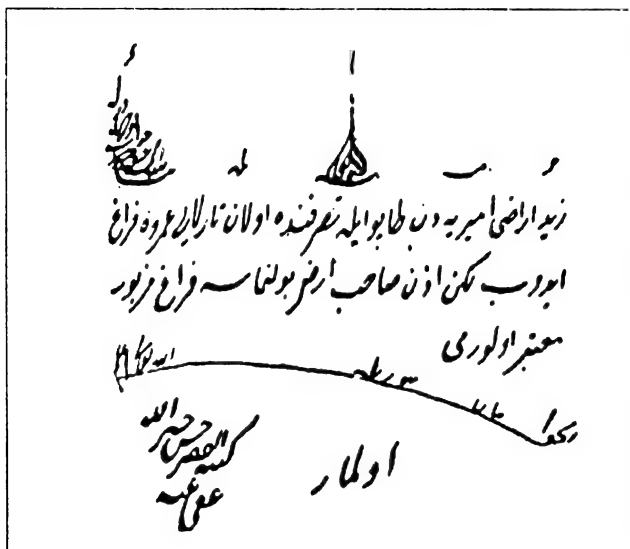 زید اراضی امیریه دن طاپو ایله تصرفنده اولان تارلالرین عمروه فراغ
ایدوب لکن اذن صاحب ارض بولنماسه فراغ مزبور
معتبر اولورمی
الجواب الله تعالی اعلم
اولماز
کتبه الفقیر حسن خیر الله
عفی عنه